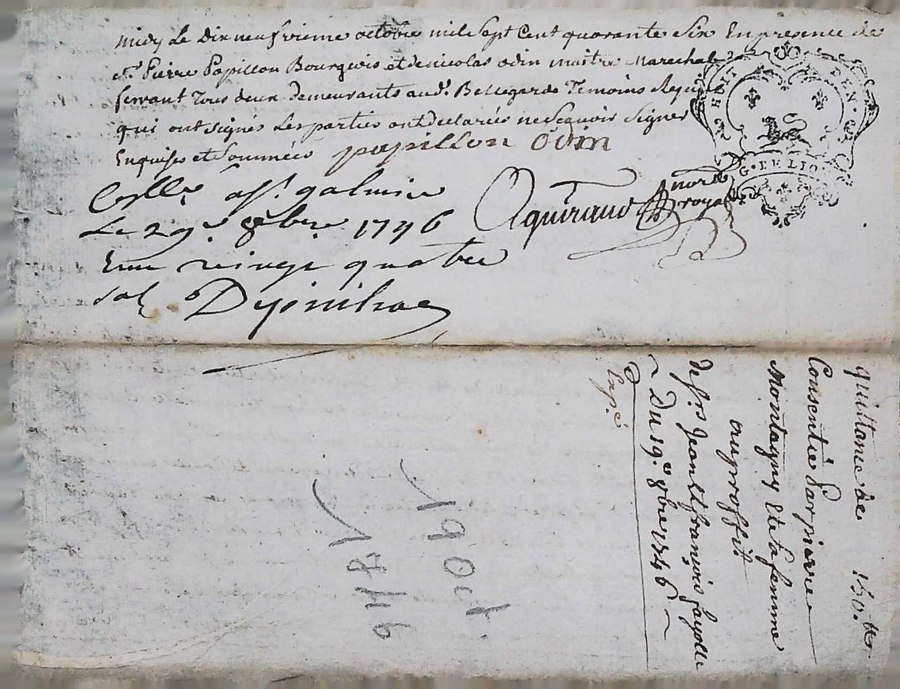 midy Le Dix neufvieme octobre mil Sept Cent quarante Six En presence de
sr. Pierre Papillon Bourgeois et de nicolas odin maitre Marechal
ferrant Tous deux demeurants aud. Bellegarde Temoins Requis
qui ont signés Les parties ont Declarées ne Sçavoir Signer
Enquises et Sommées papillon Odin
Coll. à st. galmier
Le 29e. 8bre. 1746
vingt quatre
sol
nore royal
GNALITE DE LION
quittance de 150.tt
Consentie Par pierre
Montagny Et Sa femme
au proffit
de srs Jean Et françois fayolle
Du 19e. 8bre 1746
Exp.é
19 Oct.
1746